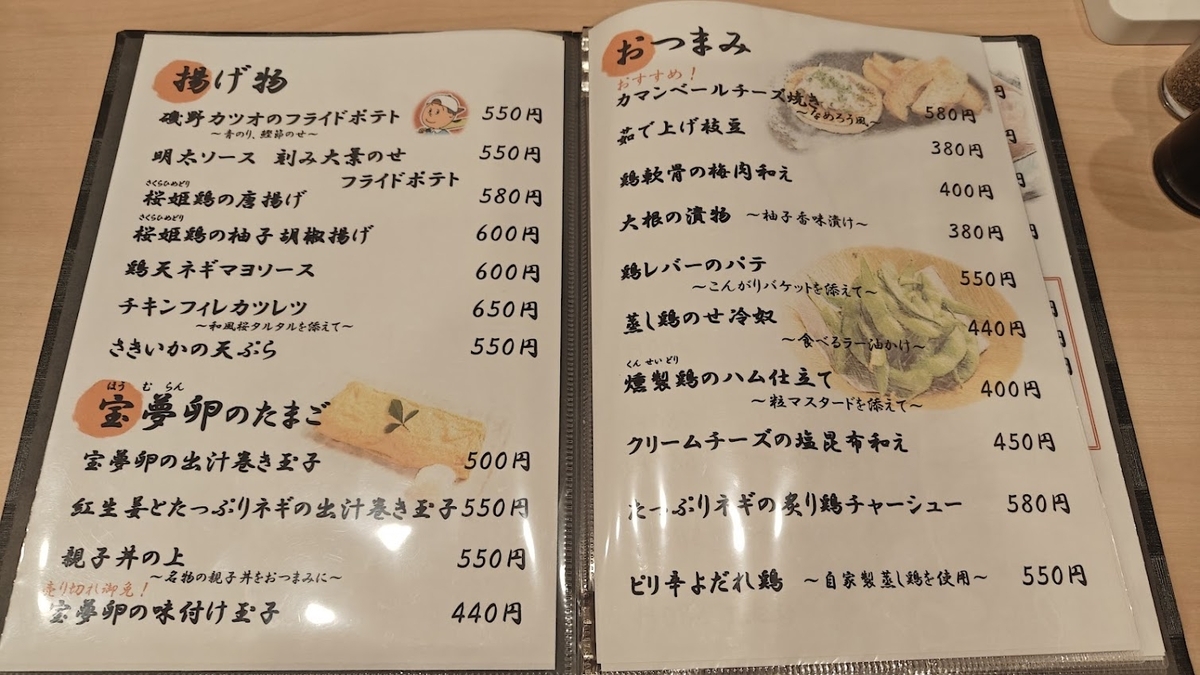 揚げ物
磯野カツオのフライドポテト 550円
～青のり、鰹節のせ～
明太ソース 刻み大葉のせ 550円
フライドポテト
さくらひめどり
桜姫鶏の唐揚げ 580円
さくらひめどり
桜姫鶏の柚子胡椒揚げ 600円
鶏天ネギマヨソース 600円
チキンフィレカツレツ 650円
～和風桜タルタルを添えて～
さきいかの天ぷら 550円
ほう む らん
宝夢卵のたまご
宝夢卵の出汁巻き玉子 500円
紅生姜とたっぷりネギの出汁巻き玉子 550円
親子丼の上 550円
～名物の親子丼をおつまみに～
売り切れ御免！
宝夢卵の味付け玉子 440円
おつまみ
おすすめ！
カマンベールチーズ焼き 580円
～なめろう風～
茹で上げ枝豆 380円
鶏軟骨の梅肉和え 400円
大根の漬物 ～柚子香味漬け～ 380円
鶏レバーのパテ 550円
～こんがりバケットを添えて～
蒸し鶏のせ冷奴 440円
～食べるラー油かけ～
くん せい どり
燻製鶏のハム仕立て 400円
～粒マスタードを添えて～
クリームチーズの塩昆布和え 450円
たっぷりネギの炙り鶏チャーシュー 580円
ピリ辛よだれ鶏 ～自家製蒸し鶏を使用～ 550円